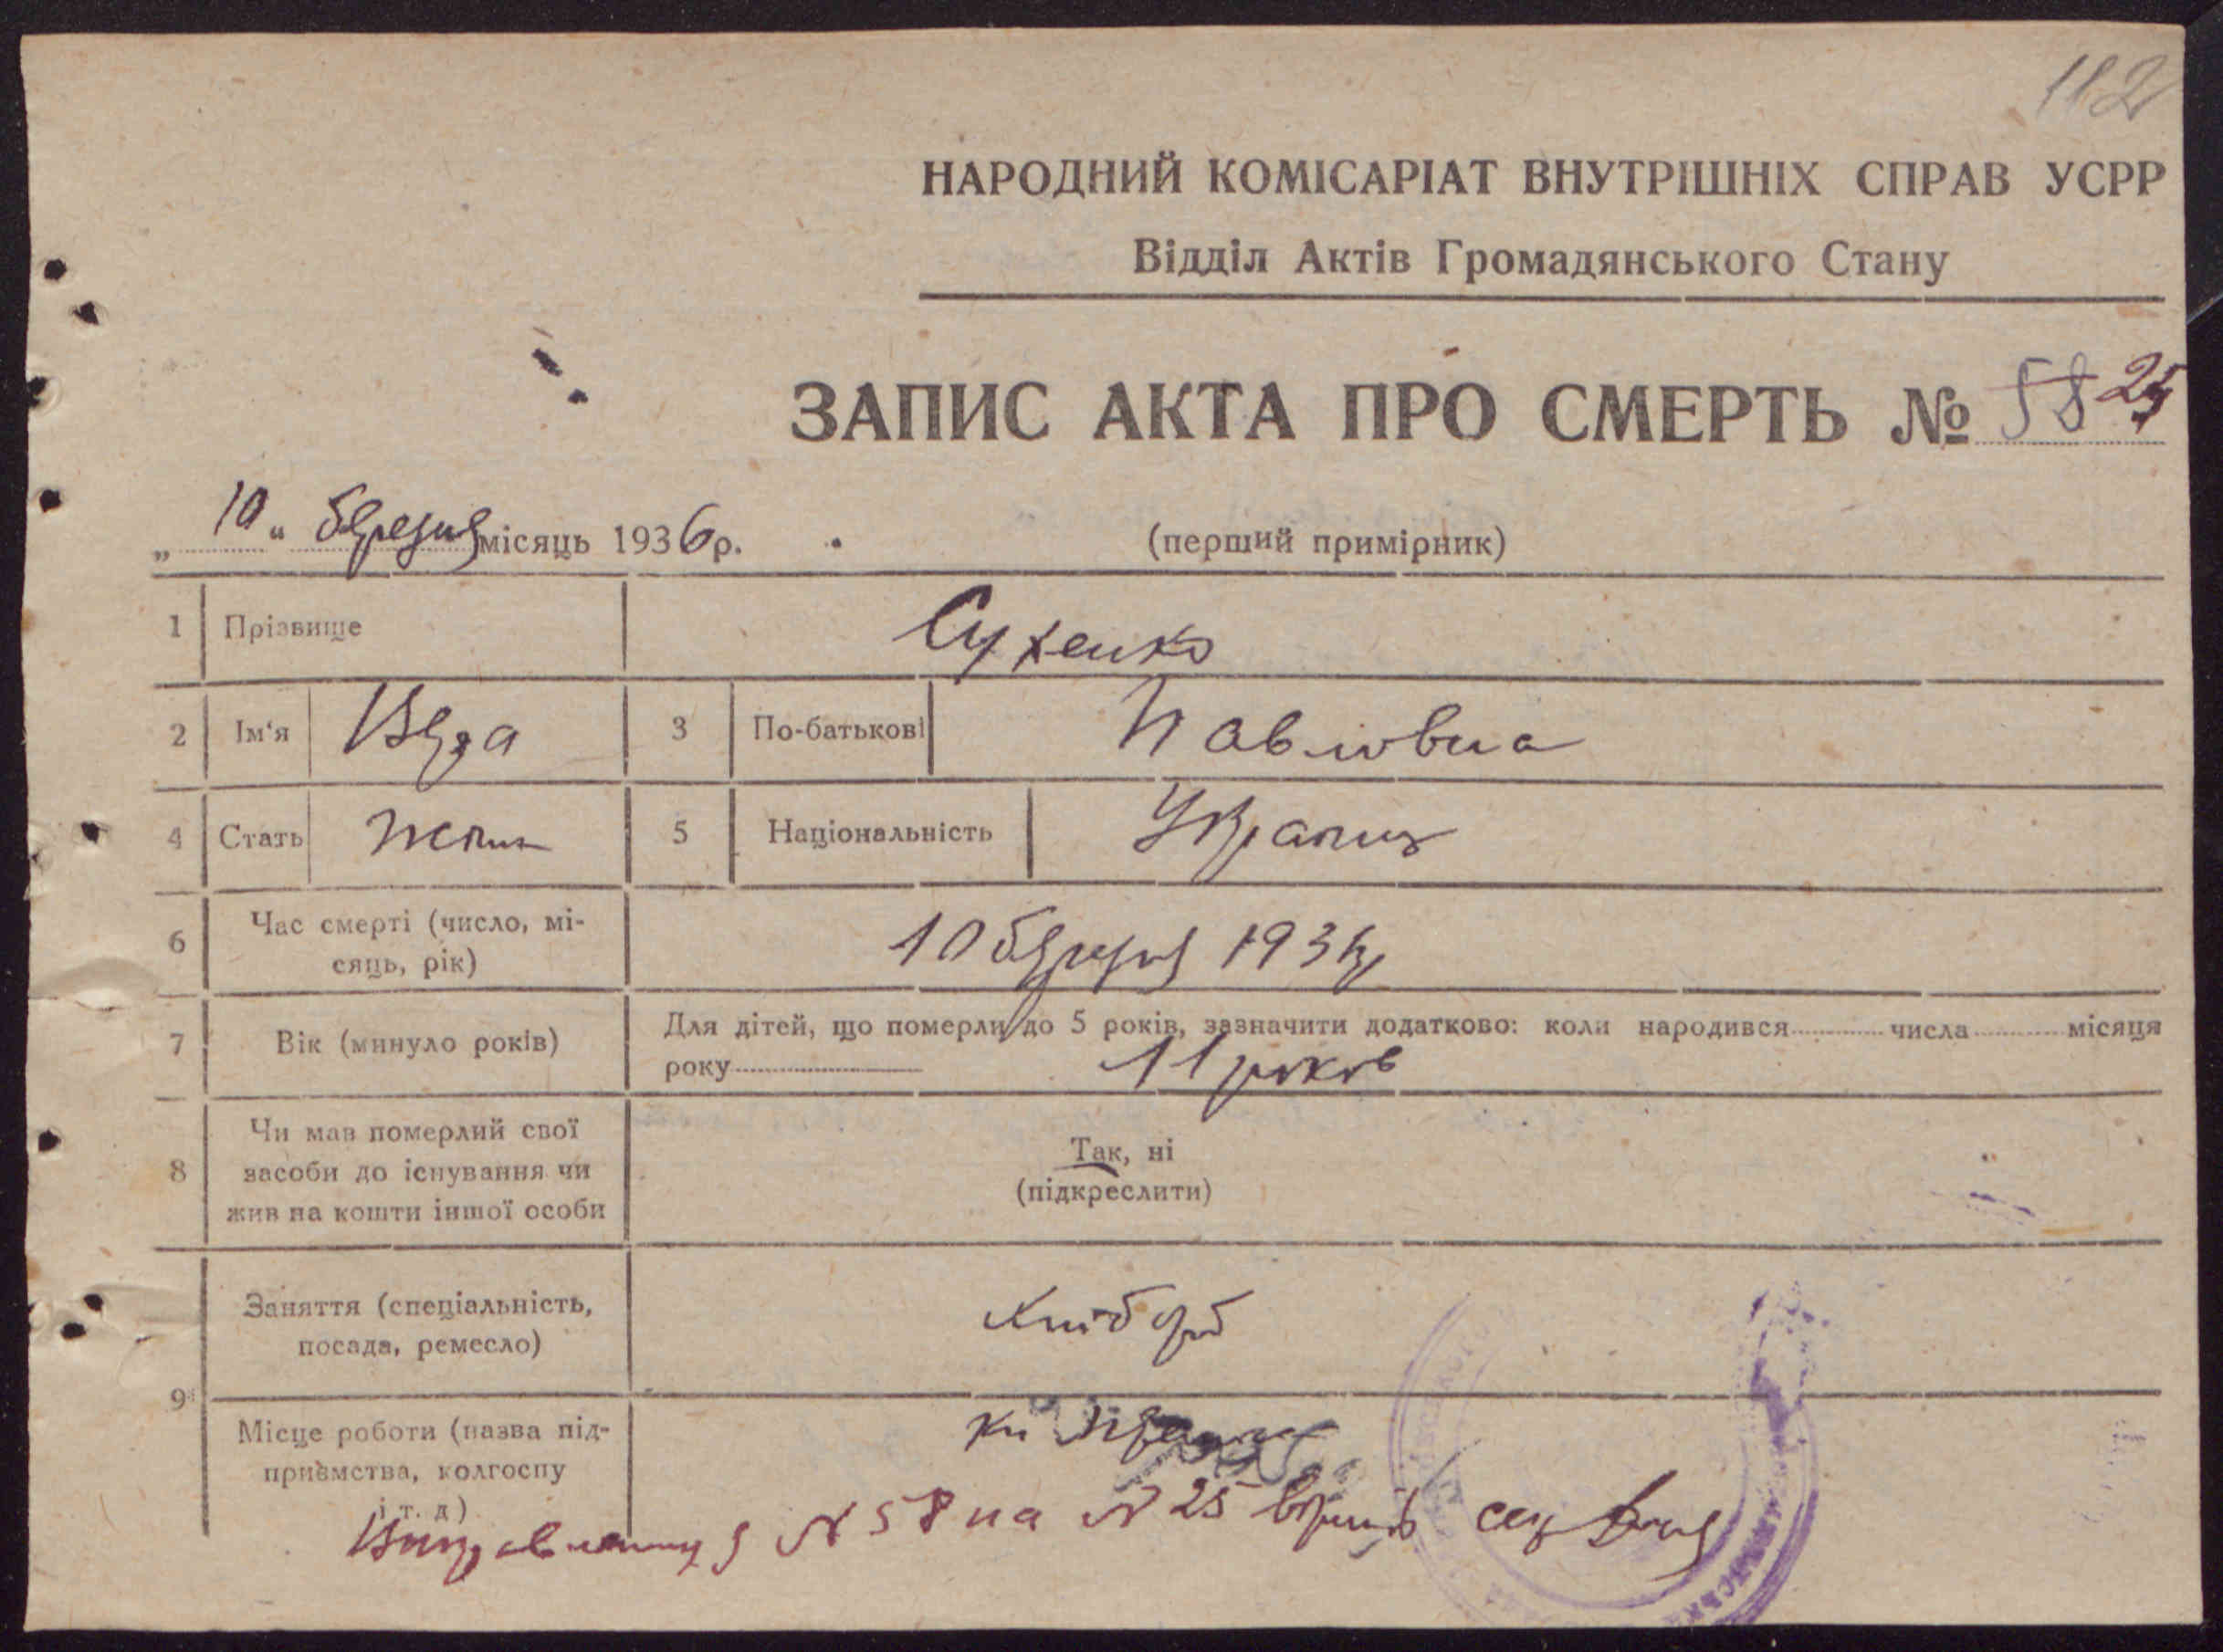 112
НАРОДНИЙ КОМІСАРІАТ ВНУТРІШНІХ СПРАВ УСРР
Відділ Актів Громадянського Стану
ЗАПИС АКТА ПРО СМЕРТЬ № 58 25
„10“ березня місяць 1936 р. (перший примірник)
1 Прізвище Сухенко
2 Ім'я Віра 3 По-батькові Павловна
4 Стать жіноч 5 Національність Україн
6 Час смерті (число, мі-
сяць, рік) 10 березня 1936
7 Вік (минуло років) Для дітей, що померли до 5 років, зазначити додатково: коли народився числа місяця
року 11 років
8 Чи мав померлий свої
засоби до існування чи
жив на кошти іншої особи Так, ні
(підкреслити)
9 Заняття (спеціальність,
посада, ремесло) хлібороб
Місце роботи (назва під-
приємства, колгоспу
і т. д)
N 58 на N 25